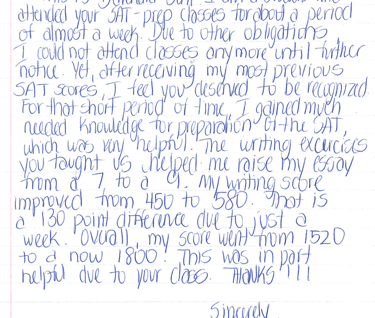 attended your SAT-prep classes for about a period
of almost a week. Due to other obligations
I could not attend classes anymore until further
notice. Yet, after receiving my most previous
SAT scores, I feel you deserved to be recognized.
For that short period of time, I gained much
needed knowledge for preparation of the SAT,
which was very helpful. The writing excercises
you taught us helped me raise my essay
from a 7, to a 9. My writing score
improved from 450 to 580. That is
a 130 point difference due to just a
week. Overall, my score went from 1520
to a now 1800! This was in part
helpful due to your class. THANKS!!!
Sincerely